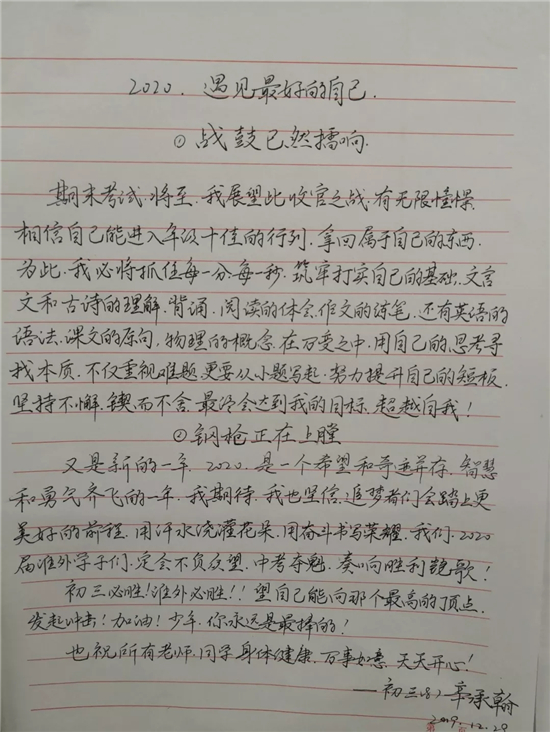 2020.遇见最好的自己.
①战鼓已然擂响.
期末考试将至.我展望此收官之战.有无限憧憬.
相信自己能进入年级十佳的行列.拿回属于自己的东西.
为此.我必将抓住每一分每一秒.筑牢打实自己的基础.文言
文和古诗的理解.背诵.阅读的体会.作文的练笔.还有英语的
语法.课文的原句.物理的概念.在万变之中.用自己的思考寻
找本质.不仅重视难题.更要从小题写起.努力提升自己的短板.
坚持不懈.锲而不舍.最终会达到我的目标.超越自我!
②钢枪正在上膛
又是新的一年.2020.是一个希望和奇迹并存.智慧
和勇气齐飞的一年.我期待.我也坚信.追梦者们会踏上更
美好的前程.用汗水浇灌花朵.用奋斗书写荣耀.我们.2020
届淮外学子们.定会不负众望.中考夺魁.奏响胜利凯歌!
初三必胜!淮外必胜!!望自己能向那个最高的顶点.
发起冲击!加油!少年.你永远是最棒的!
也祝所有老师.同学身体健康.万事如意.天天开心!
——初三(8)辛承翰
2019.12.29
第